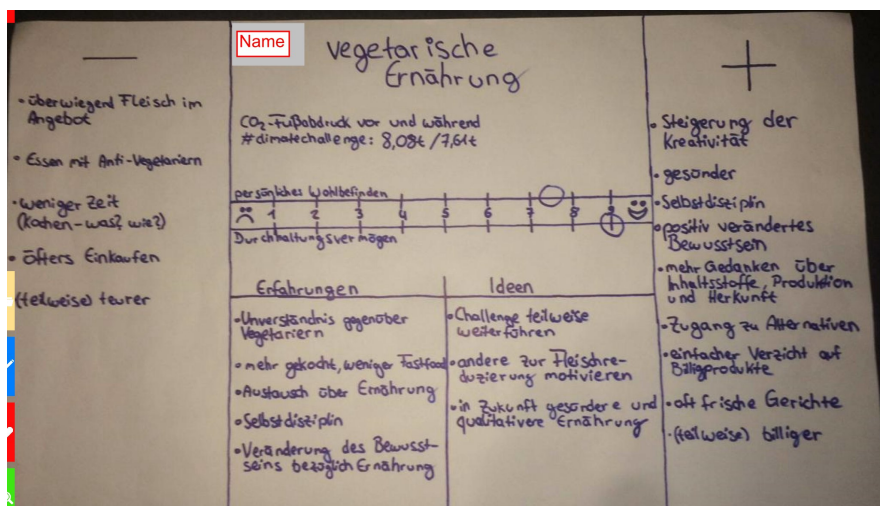 —
• überwiegend Fleisch im
Angebot
• Essen mit Anti-Vegetariern
• weniger Zeit
(Kochen – was? wie?)
• öfters Einkaufen
(teilweise) teurer
Name
vegetarische
Ernährung
CO₂-Fußabdruck vor und während
#climatechallenge: 8,08t / 7,61t
persönliches Wohlbefinden
1 2 3 4 5 6 7 8 9
Durchhaltungsvermögen
Erfahrungen
• Unverständnis gegenüber
Vegetariern
• mehr gekocht, weniger Fastfood
• Austausch über Ernährung
• Selbstdisziplin
• Veränderung des Bewusst-
seins bezüglich Ernährung
Ideen
• Challenge teilweise
weiterführen
• andere zur Fleischre-
duzierung motivieren
• in Zukunft gesündere und
qualitativere Ernährung
+
• Steigerung der
Kreativität
• gesünder
• Selbstdisziplin
• positiv verändertes
Bewusstsein
• mehr Gedanken über
Inhaltsstoffe, Produktion
und Herkunft
• Zugang zu Alternativen
• einfacher Verzicht auf
Billigprodukte
• oft frische Gerichte
• (teilweise) billiger